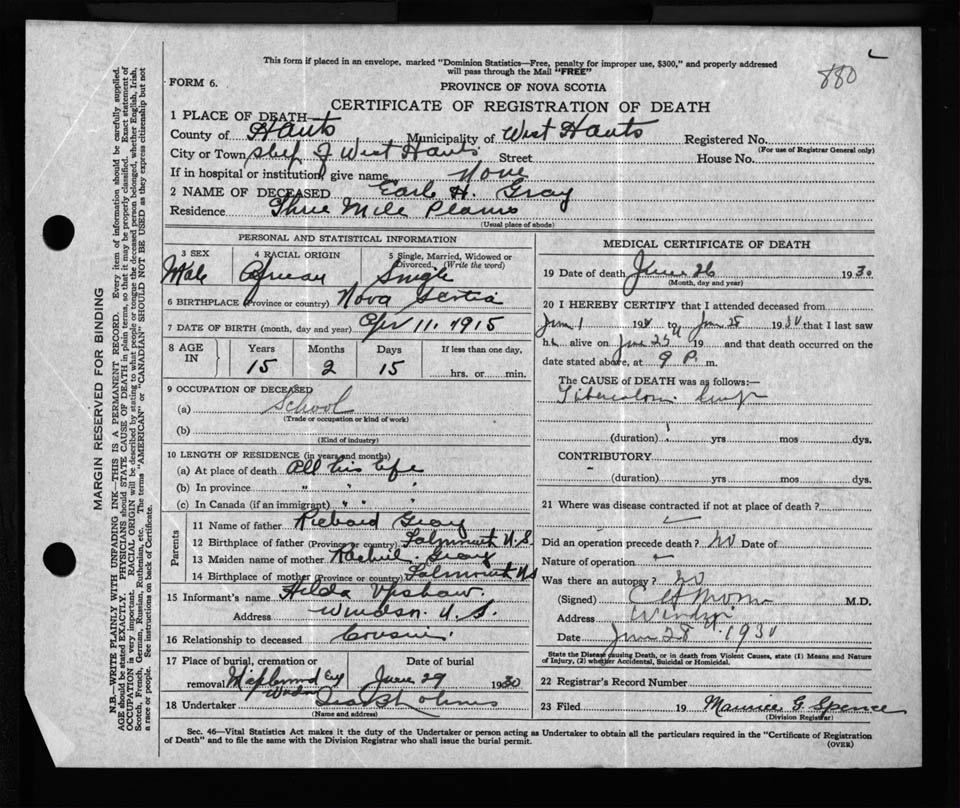 880
This form if placed in an envelope, marked "Dominion Statistics—Free, penalty for improper use, $300," and properly addressed
will pass through the Mail "FREE"
FORM 6.
PROVINCE OF NOVA SCOTIA
CERTIFICATE OF REGISTRATION OF DEATH
1 PLACE OF DEATH—
County of Hants Municipality of West Hants Registered No.
(For use of Registrar General only)
City or Town of West Hants Street House No.
If in hospital or institution, give name None
2 NAME OF DECEASED Earle H. Gray
Residence Three Mile Plains
(Usual place of abode)
PERSONAL AND STATISTICAL INFORMATION
3 SEX 4 RACIAL ORIGIN 5 Single, Married, Widowed or
Divorced. (Write the word)
Male African Single
6 BIRTHPLACE (Province or country) Nova Scotia
7 DATE OF BIRTH (month, day and year) Apr 11, 1915
8 AGE IN Years Months Days If less than one day,
15 2 15 hrs. or min.
9 OCCUPATION OF DECEASED
(a) School
(Trade or occupation or kind of work)
(b)
(Kind of industry)
10 LENGTH OF RESIDENCE (in years and months)
(a) At place of death All his life
(b) In province " " "
(c) In Canada (if an immigrant) " " "
Parents
11 Name of father Richard Gray
12 Birthplace of father (Province or country) Falmouth N.S.
13 Maiden name of mother Gray
14 Birthplace of mother (Province or country) Falmouth N.S
15 Informant's name Hilda Upshaw
Address Windsor. N.S.
16 Relationship to deceased Cousin.
17 Place of burial, cremation or Date of burial
removal Maplewood Cey Windsor June 29 1930
18 Undertaker
(Name and address)
MEDICAL CERTIFICATE OF DEATH
19 Date of death June 26 1930
(Month, day and year)
20 I HEREBY CERTIFY that I attended deceased from
June 1 19 June 1930 that I last saw
h alive on June 25 19 and that death occurred on the
date stated above, at 9 P. m.
The CAUSE OF DEATH was as follows:—
(duration) yrs mos dys.
CONTRIBUTORY
(duration) yrs mos dys.
21 Where was disease contracted if not at place of death?
Did an operation precede death? no Date of
Nature of operation
Was there an autopsy? no
(Signed) M.D.
Address Windsor
Date June 28 1930
State the Disease causing Death, or in death from Violent Causes, state (1) Means and Nature
of Injury, (2) whether Accidental, Suicidal or Homicidal.
22 Registrar's Record Number
23 Filed 19 Maurice G. Spence
(Division Registrar)
Sec. 46—Vital Statistics Act makes it the duty of the Undertaker or person acting as Undertaker to obtain all the particulars required in the "Certificate of Registration
of Death" and to file the same with the Division Registrar who shall issue the burial permit.
(OVER)
MARGIN RESERVED FOR BINDING
N.B.—WRITE PLAINLY WITH UNFADING INK—THIS IS A PERMANENT RECORD. Every item of information should be carefully supplied.
AGE should be stated EXACTLY. PHYSICIANS should STATE CAUSE OF DEATH in plain terms, so that it may be properly classified. Exact statement of
OCCUPATION is very important. RACIAL ORIGIN will be described by stating to what people or tongue the deceased person belonged, whether English, Irish,
Scotch, French, German, Russian, Ruthenian, etc. The terms "AMERICAN" or "CANADIAN" SHOULD NOT BE USED as they express citizenship but not
a race or people. See instructions on back of Certificate.